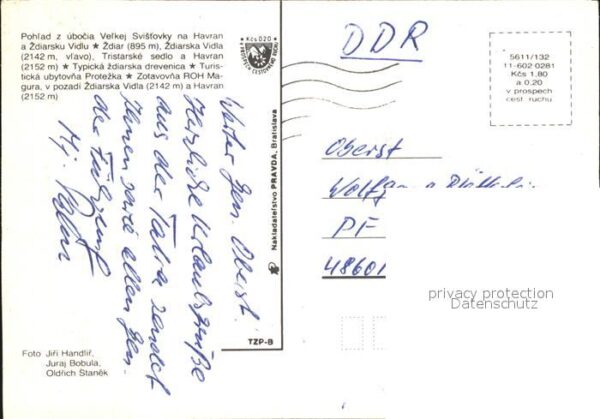 Pohľad z úbočia Veľkej Svišťovky na Havran
a Ždiarsku Vidlu ★ Ždiar (895 m), Ždiarska Vidla
(2142 m, vľavo), Tristarské sedlo a Havran
(2152 m) ★ Typická ždiarska drevenica ★ Turis-
tická ubytovňa Protežka ★ Zotavovňa ROH Ma-
gura, v pozadí Ždiarska Vidla (2142 m) a Havran
(2152 m)
Kčs 0,20
V PROSPECH CESTOVNÉHO RUCHU
DDR
5611/132
11-602 0281
Kčs 1,80
a 0,20
v prospech
cest. ruchu
Werter Gen. Oberst!
Herzliche Urlaubsgrüße
aus der Tatra sendet
Ihnen sowie allen Gen.
der
Mj.
Nakladateľstvo PRAVDA, Bratislava
TZP-B
Oberst
Wolfgang
PF
48601
privacy protection
Datenschutz
Foto Jiří Handlíř,
Juraj Bobula,
Oldřich Staněk